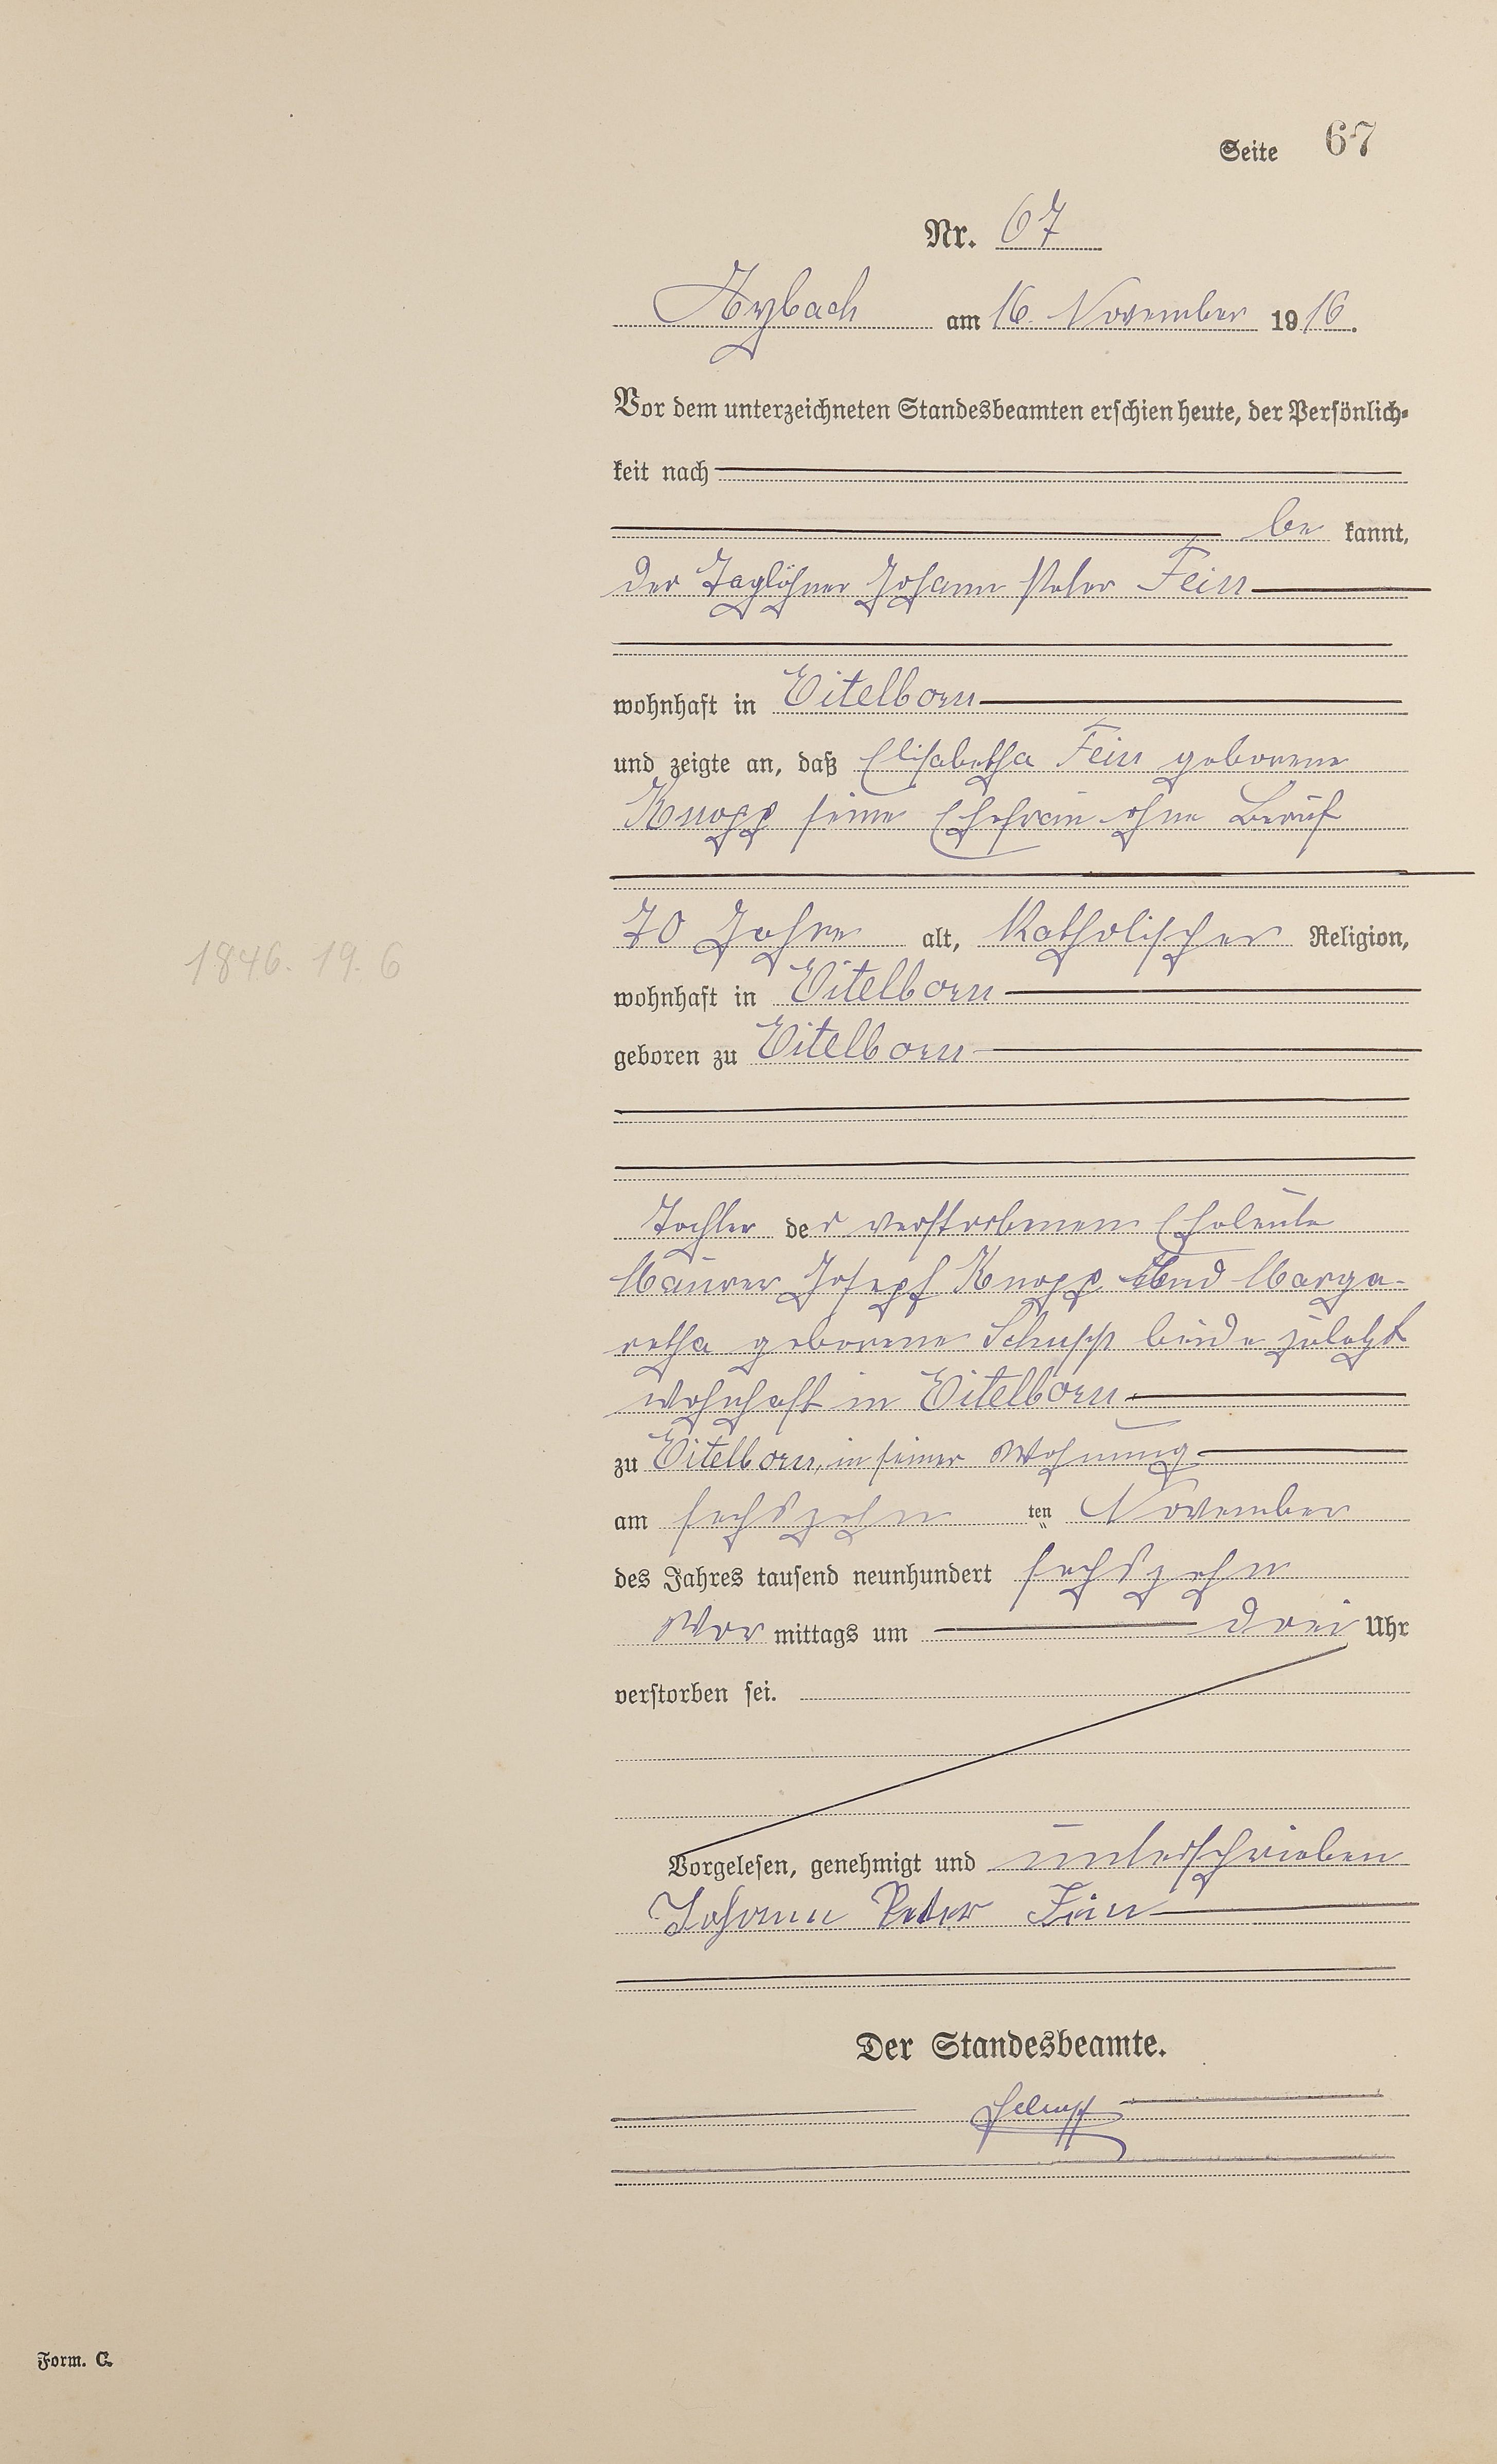 Seite 67
Nr. 67
Arzbach am 16. November 1916.
Vor dem unterzeichneten Standesbeamten erschien heute, der Persönlich-
keit nach
be kannt,
der Taglöhner Johann Peter Fein
wohnhaft in Eitelborn
und zeigte an, daß Elisabetha Fein geborene
Knopp seine Ehefrau ohne Beruf
1846. 19. 6
70 Jahre alt, Katholischer Religion,
wohnhaft in Eitelborn
geboren zu Eitelborn
Tochter der verstorbenen Eheleute
Maurer Joseph Knopp und Marga-
retha geborene Schupp beide zuletzt
wohnhaft in Eitelborn
zu Eitelborn, in seiner Wohnung
am sechszehn ten November
des Jahres tausend neunhundert sechszehn
Vor mittags um drei Uhr
verstorben sei.
Vorgelesen, genehmigt und unterschrieben
Johann Peter Fein
Der Standesbeamte.
Form. C.